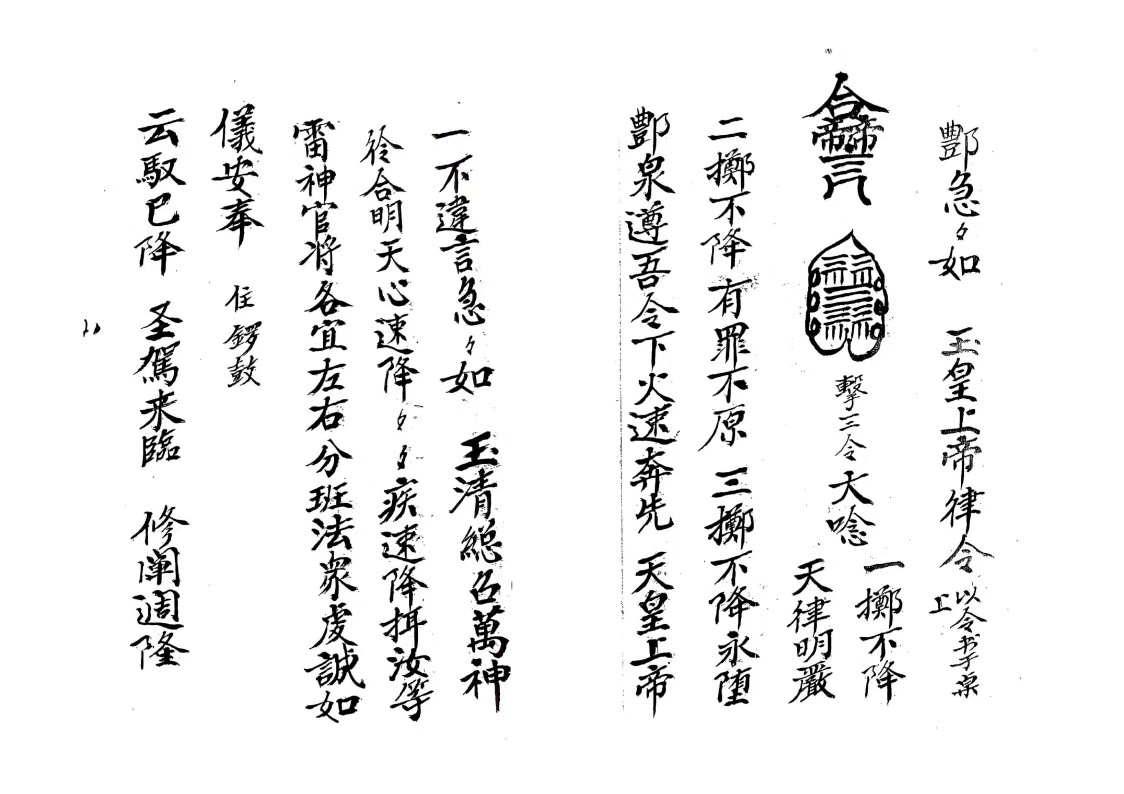 酆急〻如　玉皇上帝律令 以令书于桌上
擊三令 大唸 一擲不降 天律明嚴
二擲不降 有罪不原 三擲不降永堕
酆泉遵吾令下火速奔先 天皇上帝
一不違言急〻如 玉清總召萬神
符合明天心速降〻〻疾速降拜汝等
雷神官将各宜左右分班法衆虔誠如
儀安奉 住鑼鼓
云馭已降 圣駕来臨 修闡週隆